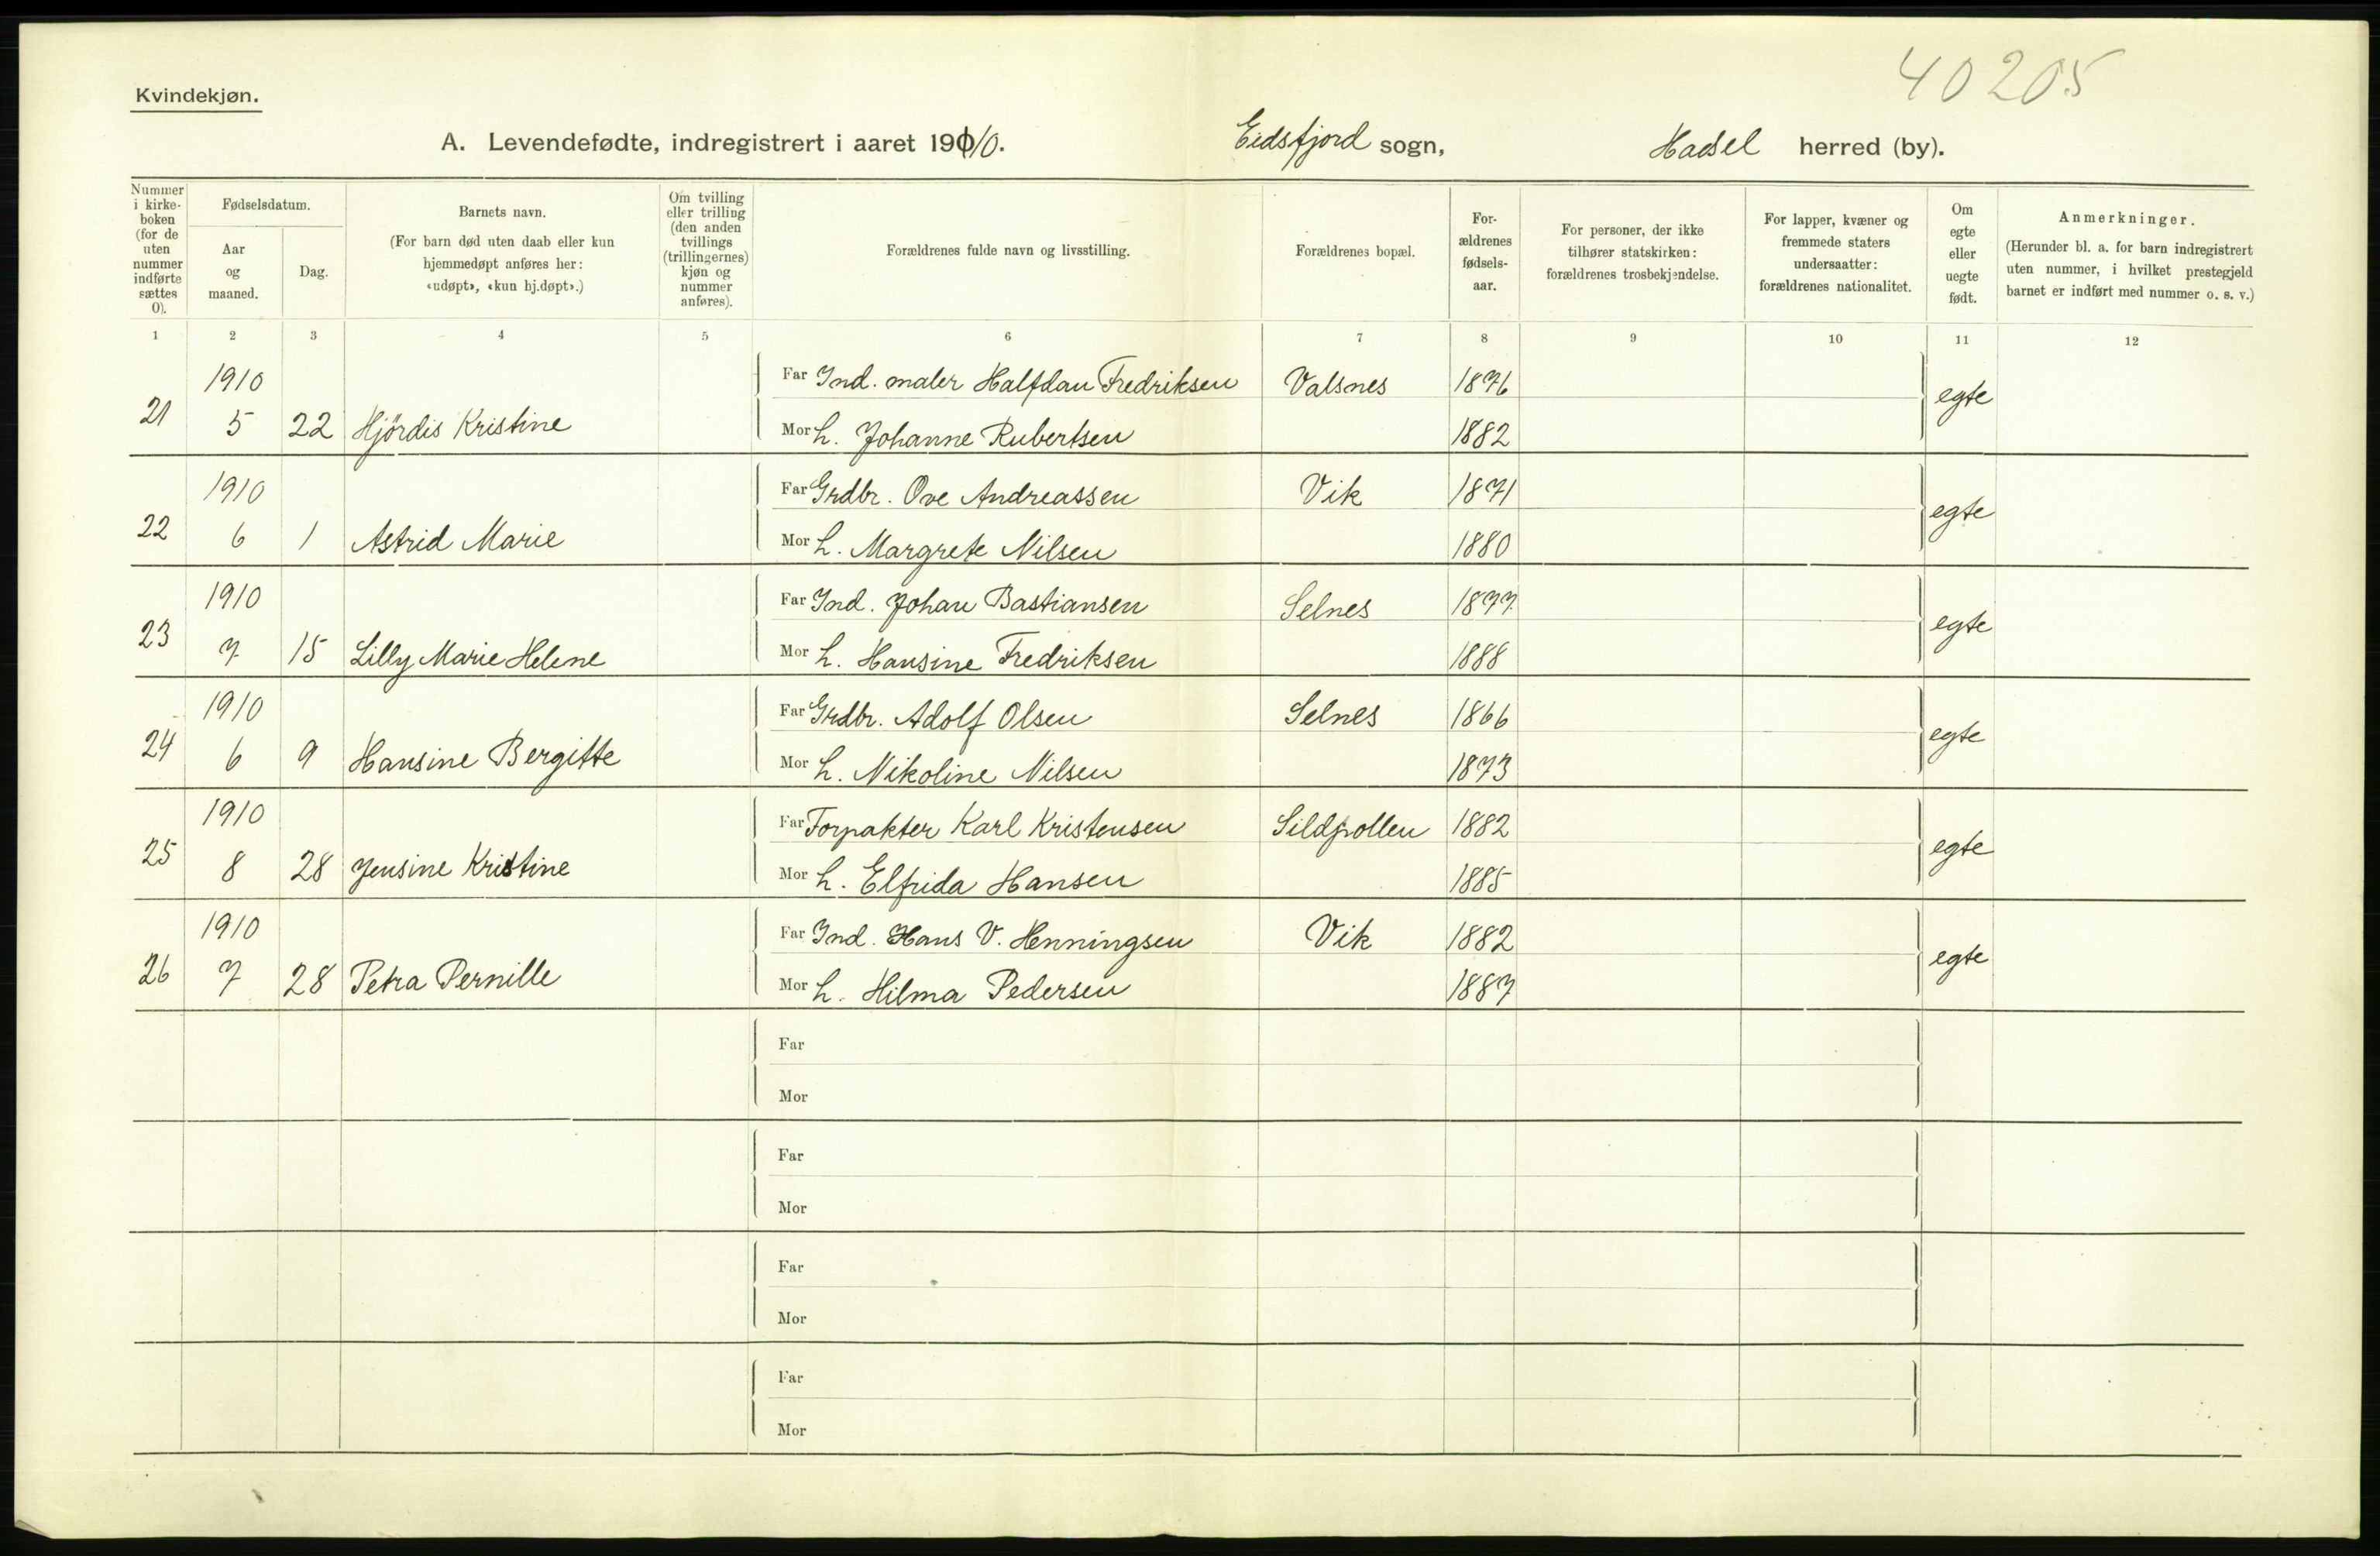 40205
Kvindekjøn.
A. Levendefødte, indregistrert i aaret 1910. Eidsfjord sogn, Hadsel herred (by).
Nummer i kirke-boken (for de uten nummer indførte sættes 0).
Fødselsdatum.
Aar og maaned.
Dag.
Barnets navn.
(For barn død uten daab eller kun hjemmedøpt anføres her: «udøpt», «kun hj.døpt».)
Om tvilling eller trilling (den anden tvillings (trillingernes) kjøn og nummer anføres).
Forældrenes fulde navn og livsstilling.
Forældrenes bopæl.
For-ældrenes fødsels-aar.
For personer, der ikke tilhører statskirken: forældrenes trosbekjendelse.
For lapper, kvæner og fremmede staters undersaatter: forældrenes nationalitet.
Om egte eller uegte født.
Anmerkninger.
(Herunder bl. a. for barn indregistrert uten nummer, i hvilket prestegjeld barnet er indført med nummer o. s. v.)
1 2 3 4 5 6 7 8 9 10 11 12
1910 Far Ind. maler Halfdan Fredriksen Valsnes 1876 egte
21 5 22 Hjördis Kristine Mor h. Johanne Rubertsen 1882
1910 Far Grdbr. Ove Andreassen Vik 1871 egte
22 6 1 Astrid Marie Mor h. Margrete Nilsen 1880
1910 Far Ind. Johan Bastiansen Selnes 1877 egte
23 7 15 Lilly Marie Helene Mor h. Hansine Fredriksen 1888
1910 Far Grdbr. Adolf Olsen Selnes 1866 egte
24 6 9 Hansine Bergitte Mor h. Nikoline Nilsen 1873
1910 Far Forpakter Karl Kristensen Sildpollen 1882 egte
25 8 28 Jensine Kristine Mor h. Elfrida Hansen 1885
1910 Far Ind. Hans V. Henningsen Vik 1882 egte
26 7 28 Petra Pernille Mor h. Hilma Pedersen 1887
Far
Mor
Far
Mor
Far
Mor
Far
Mor